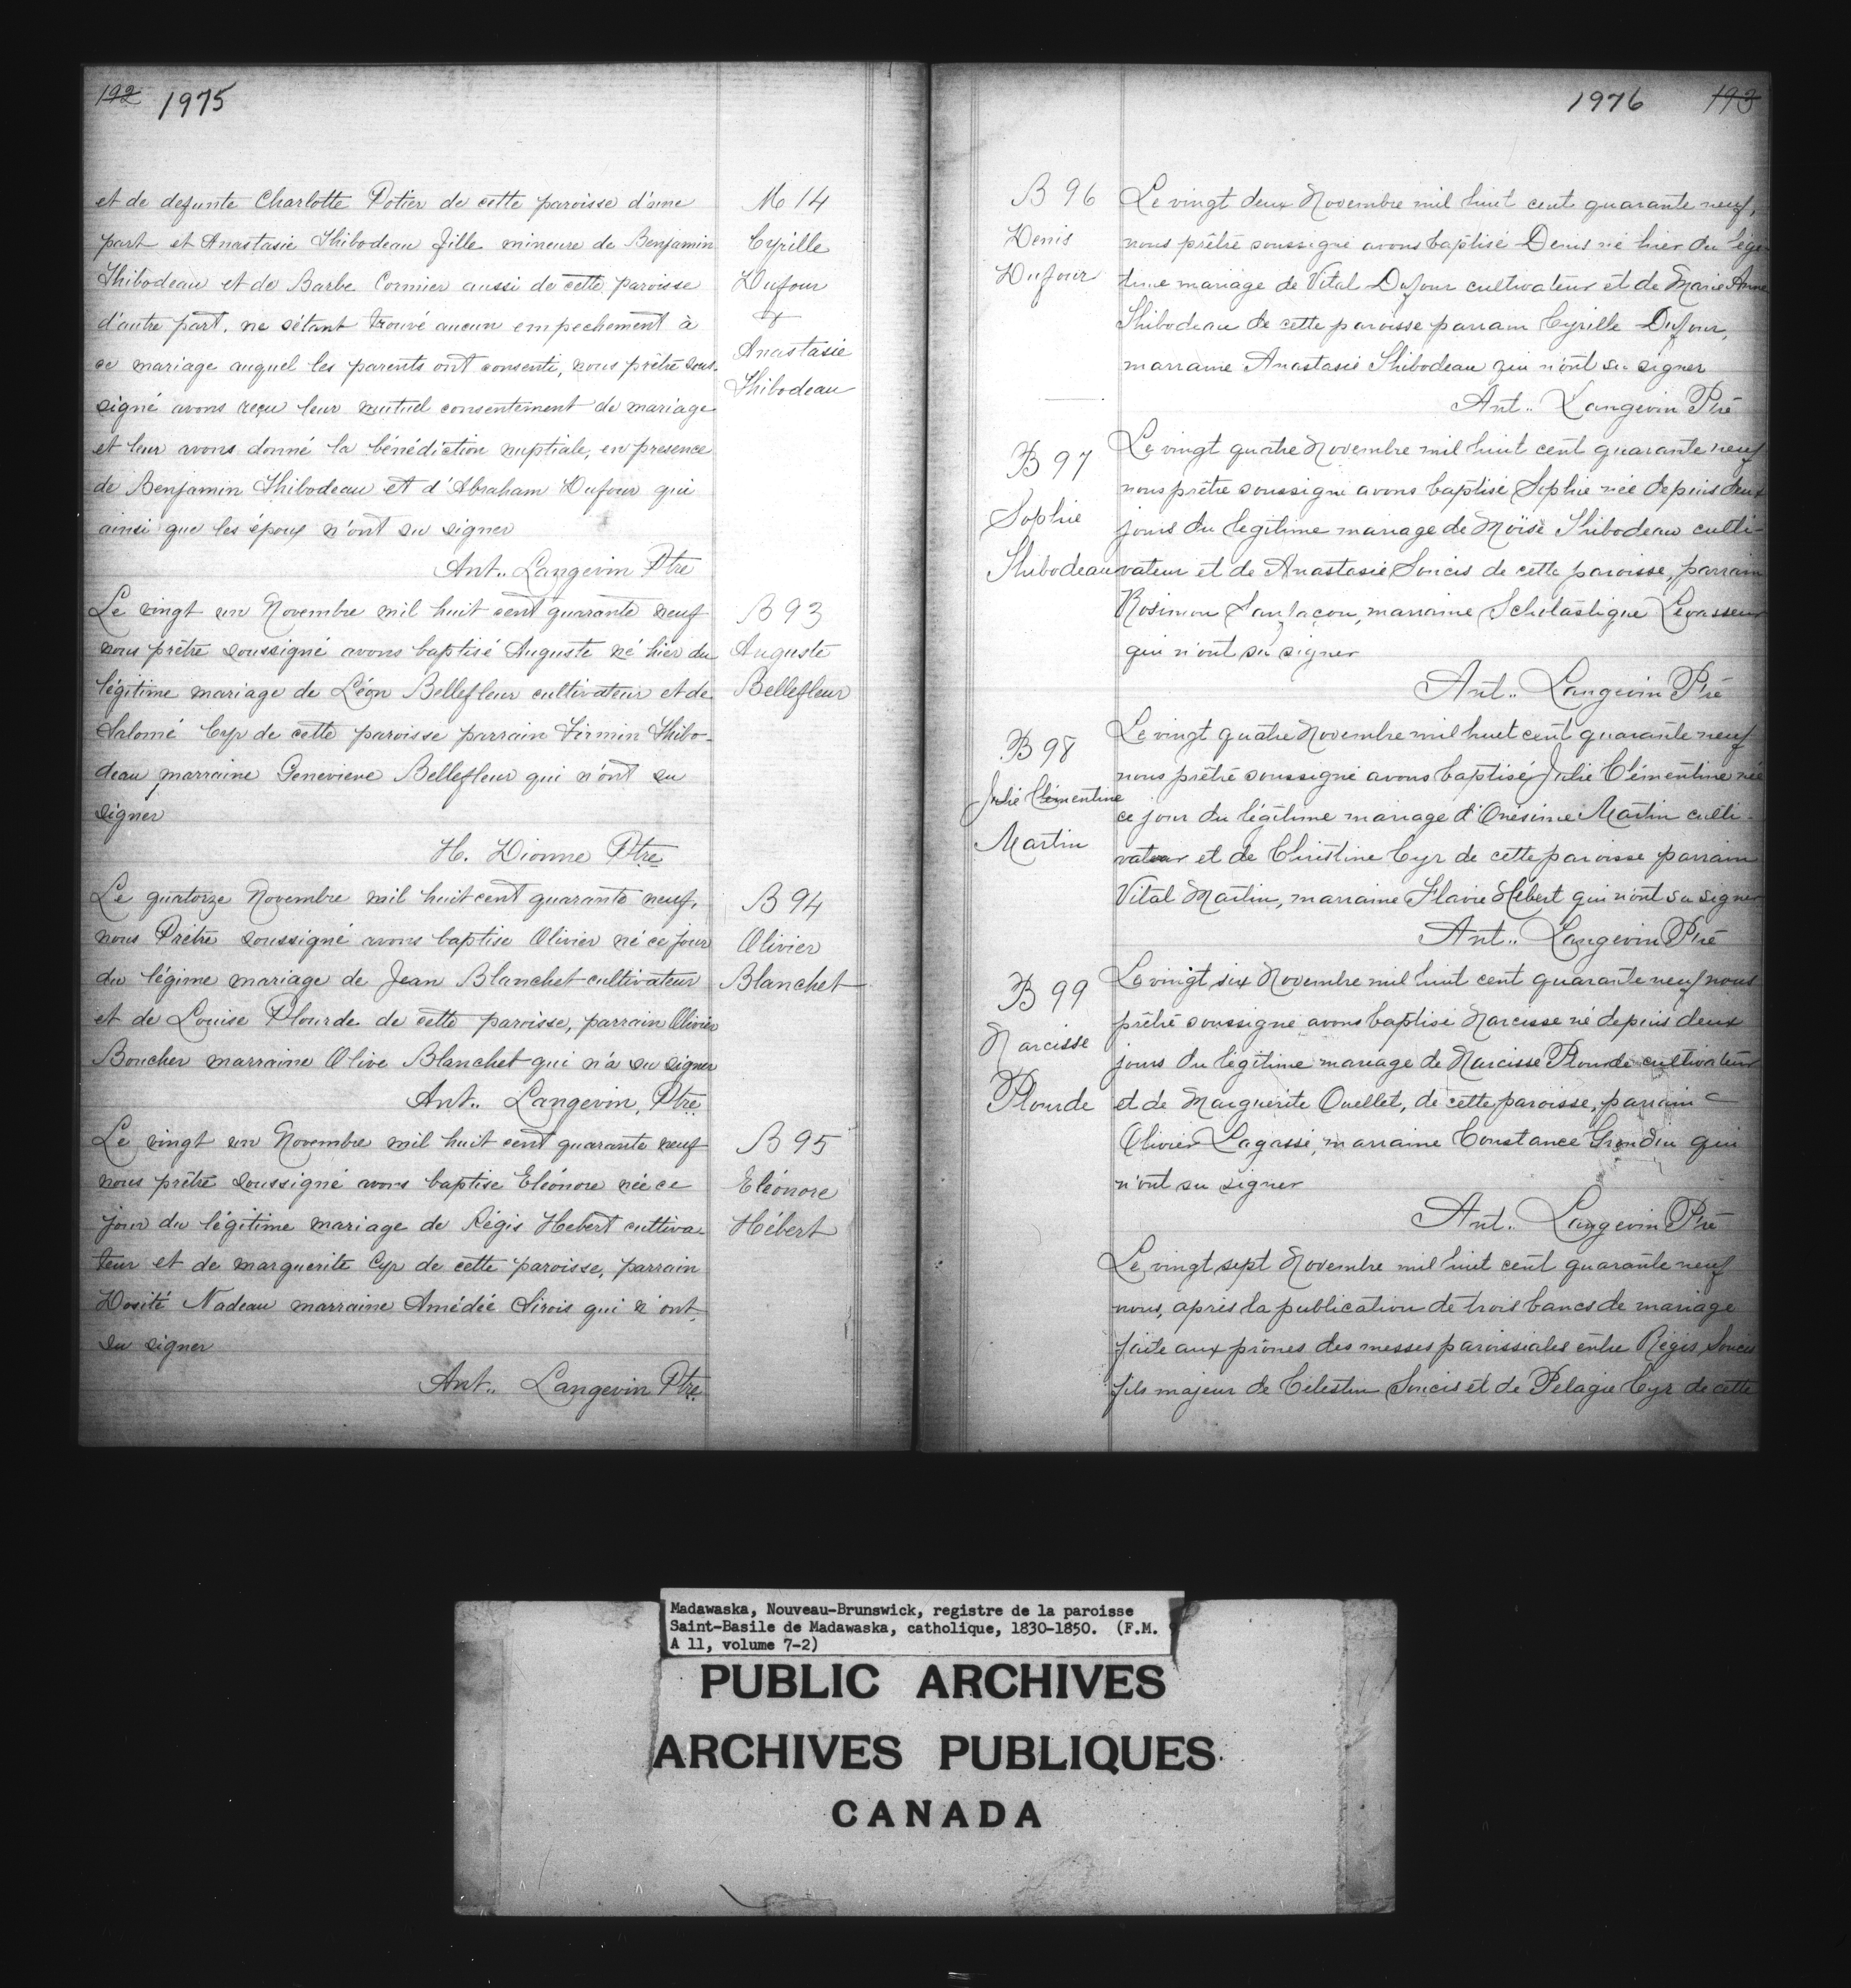 192 1975
et de defunte Charlotte Potier de cette paroisse d'une
part et Anastasie Thibodeau fille mineure de Benjamin
Thibodeau et de Barbe Cormier aussi de cette paroisse
d'autre part. ne s'étant trouvé aucun empechement à
ce mariage auquel les parents ont consenti, nous prêtre sous-
signé avons reçu leur mutuel consentement de mariage
et leur avons donné la bénédiction nuptiale, en presence
de Benjamin Thibodeau et d'Abraham Dufour qui
ainsi que les époux n'ont su signer
Ant.. Langevin Ptre
M 14
Cyrille
Dufour
+
Anastasie
Thibodeau
Le vingt un Novembre mil huit cent quarante neuf
nous prêtre soussigné avons baptisé Auguste né hier du
légitime mariage de Léon Bellefleur cultivateur et de
Salomé Cyr de cette paroisse parrain Firmin Thibo-
deau, marraine Genevieve Bellefleur qui n'ont su
signer
H. Dionne Ptre
B 93
Auguste
Bellefleur
Le quatorze Novembre mil huit cent quarante neuf,
nous Prêtre soussigné avons baptise Olivier né ce jour
du légime mariage de Jean Blanchet cultivateur
et de Louise Plourde de cette paroisse, parrain Olivier
Boucher marraine Olive Blanchet qui n'a su signer
Ant.. Langevin, Ptre
B 94
Olivier
Blanchet
Le vingt un Novembre mil huit cent quarante neuf
nous prêtre soussigné avons baptise Eléonore née ce
jour du légitime mariage de Régis Hebert cultiva-
teur et de marguerite Cyr de cette paroisse, parrain
Dosité Nadeau marraine Amédée Sirois qui n'ont
su signer
Ant.. Langevin Ptre
B 95
Eléonore
Hébert
1976 193
B 96
Denis
Dufour
Le vingt deux Novembre mil huit cent quarante neuf,
nous prêtre soussigné avons baptisé Denis né hier du légi-
time mariage de Vital Dufour cultivateur et de Marie Anne
Thibodeau de cette paroisse parrain Cyrille Dufour,
marraine Anastasie Thibodeau qui n'ont su signer
Ant.. Langevin Ptre
B 97
Sophie
Thibodeau
Le vingt quatre Novembre mil huit cent quarante neuf
nous prêtre soussigné avons baptisé Sophie née depuis deux
jours du legitime mariage de Moïse Thibodeau culti-
vateur et de Anastasie Soucis de cette paroisse, parrain
Rosimon Sanfaçon, marraine Scholastique Levasseur
qui n'ont su signer
Ant.. Langevin Ptre
B 98
Julie Clémentine
Martin
Le vingt quatre Novembre mil huit cent quarante neuf
nous prêtre soussigné avons baptisé Julie Clémentine née
ce jour du légitime mariage d'Onésime Martin culti-
vateur et de Christine Cyr de cette paroisse parrain
Vital Martin, marraine Flavie Hébert qui n'ont su signer
Ant.. Langevin Ptre
B 99
Narcisse
Plourde
Le vingt six Novembre mil huit cent quarante neuf nous
prêtre soussigné avons baptisé Narcisse né depuis deux
jours du légitime mariage de Narcisse Plourde cultivateur
et de Marguerite Ouellet, de cette paroisse, parrain
Olivier Lagassé, marraine Constance Grondin qui
n'ont su signer
Ant.. Langevin Ptre
Le vingt sept Novembre mil huit cent quarante neuf
nous, après la publication de trois bancs de mariage
faite aux prônes des messes paroissiales entre Régis Soucis
fils majeur de Célestin Soucis et de Pelagie Cyr de cette
Madawaska, Nouveau-Brunswick, registre de la paroisse
Saint-Basile de Madawaska, catholique, 1830-1850. (F.M.
A 11, volume 7-2)
PUBLIC ARCHIVES
ARCHIVES PUBLIQUES
CANADA